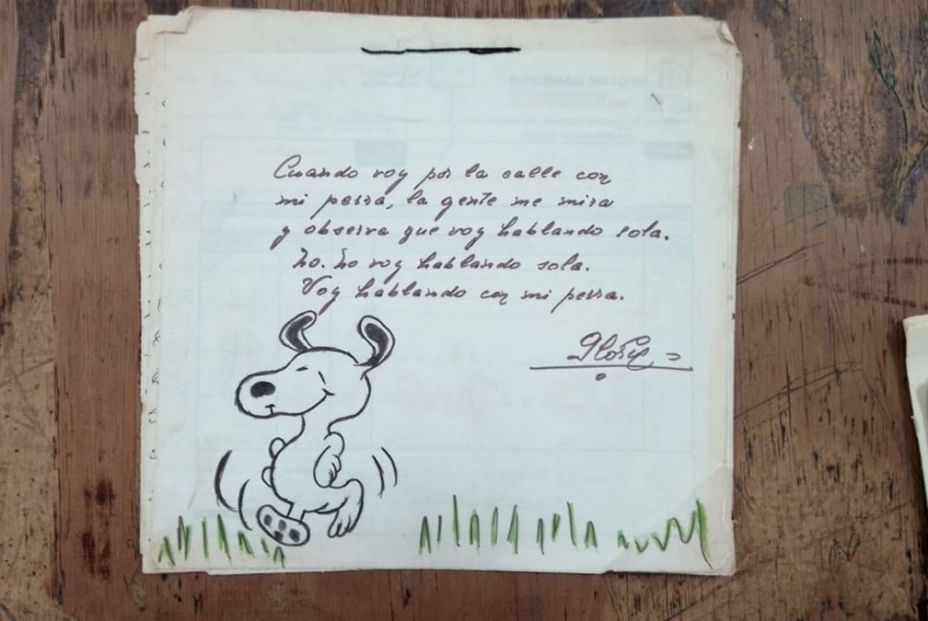 Cuando voy por la calle con
mi perra, la gente me mira
y observa que voy hablando sola.
No. No voy hablando sola.
Voy hablando con mi perra.